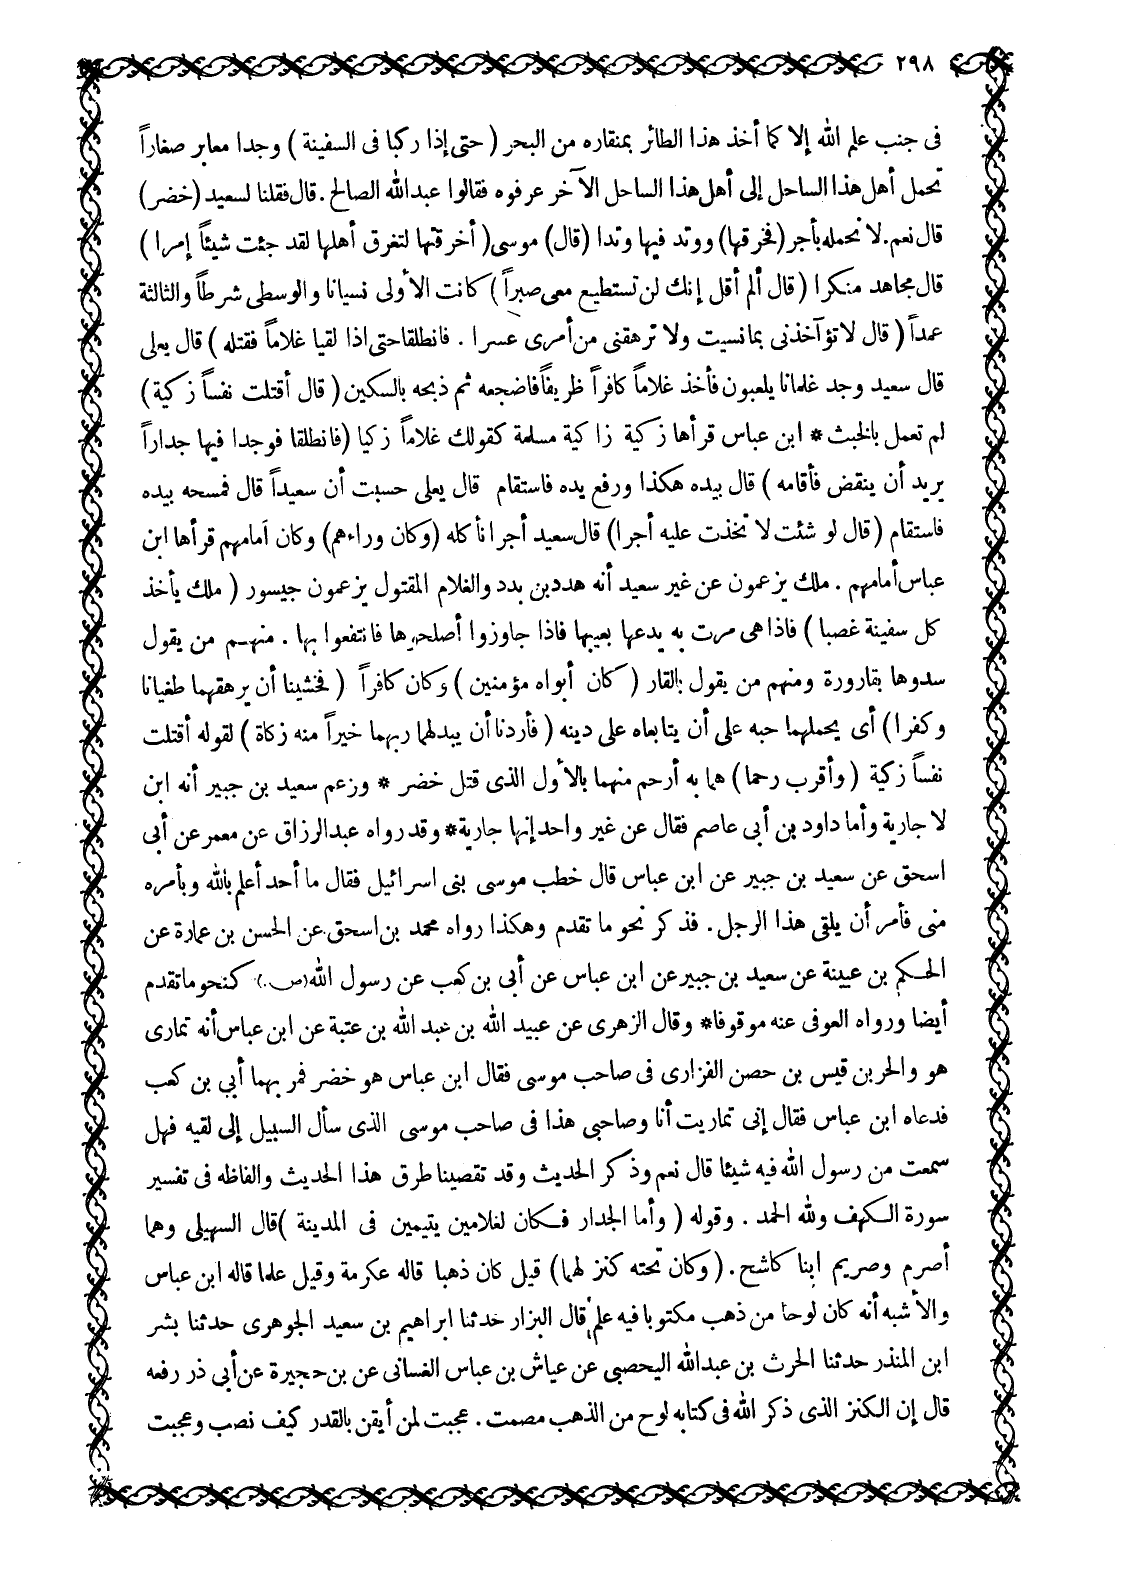 ٢٩٨
فى جنب علم الله إلا كما أخذ هذا الطائر بمنقاره من البحر ( حتى إذا ركبا فى السفينة ) وجدا معابر صغاراً
تحمل أهل هذا الساحل إلى أهل هذا الساحل الآخر عرفوه فقالوا عبدالله الصالح . قال فقلنا لسعيد (خضر)
قال نعم . لا نحمله بأجر (فخرقها) ووتد فيها وتدا (قال) موسى ( أخرقتها لتغرق أهلها لقد جئت شيئاً إمرا )
قال مجاهد منكرا ( قال ألم أقل إنك لن تستطيع معى صبراً ) كانت الأولى نسيانا والوسطى شرطاً والثالثة
عمداً ( قال لا تؤآخذنى بما نسيت ولا ترهقنى من أمرى عسرا . فانطلقا حتى اذا لقيا غلاماً فقتله ) قال يعلى
قال سعيد وجد غلمانا يلعبون فأخذ غلاماً كافراً ظريفاً فاضجعه ثم ذبحه بالسكين ( قال أقتلت نفساً زكية )
لم تعمل بالخبث * ابن عباس قرأها زكية زاكية مسلمة كقولك غلاماً زكيا (فانطلقا فوجدا فيها جداراً
يريد أن ينقض فأقامه ) قال بيده هكذا ورفع يده فاستقام قال يعلى حسبت أن سعيداً قال فمسحه بيده
فاستقام ( قال لو شئت لا تخذت عليه أجرا) قال سعيد أجرا نأكله (وكان وراءهم) وكان أمامهم قرأها ابن
عباس أمامهم . ملك يزعمون عن غير سعيد أنه هدد بن بدد والغلام المقتول يزعمون جيسور ( ملك يأخذ
كل سفينة غصبا ) فاذا هى مرت به يدعها بعيبها فاذا جاوزوا أصلحوها فانتفعوا بها . منهم من يقول
سدوها بقارورة ومنهم من يقول بالقار ( كان أبواه مؤمنين ) وكان كافراً ( فخشينا أن يرهقهما طغيانا
وكفرا ) أى يحملهما حبه على أن يتابعاه على دينه ( فأردنا أن يبدلهما ربهما خيراً منه زكاة ) لقوله أقتلت
نفساً زكية ( وأقرب رحما ) هما به أرحم منهما بالأول الذى قتل خضر * وزعم سعيد بن جبير أنه ابن
لا جارية وأما داود بن أبى عاصم فقال عن غير واحد إنها جارية * وقد رواه عبدالرزاق عن معمر عن أبى
اسحق عن سعيد بن جبير عن ابن عباس قال خطب موسى بنى اسرائيل فقال ما أحد أعلم بالله وبأمره
منى فأمر أن يلقى هذا الرجل . فذكر نحو ما تقدم وهكذا رواه محمد بن اسحق عن الحسن بن عمارة عن
الحكم بن عيينة عن سعيد بن جبير عن ابن عباس عن أبى بن كعب عن رسول الله (ص.) كنحو ما تقدم
أيضا ورواه العوفى عنه موقوفا * وقال الزهرى عن عبيد الله بن عبد الله بن عتبة عن ابن عباس أنه تمارى
هو والحر بن قيس بن حصن الفزارى فى صاحب موسى فقال ابن عباس هو خضر فمر بهما أبي بن كعب
فدعاه ابن عباس فقال إنى تماريت أنا وصاحبى هذا فى صاحب موسى الذى سأل السبيل إلى لقيه فهل
سمعت من رسول الله فيه شيئا قال نعم وذكر الحديث وقد تقصينا طرق هذا الحديث والفاظه فى تفسير
سورة الكهف ولله الحمد . وقوله ( وأما الجدار فكان لغلامين يتيمين فى المدينة ) قال السهيلى وهما
أصرم وصريم ابنا كاشح . ( وكان تحته كنز لهما ) قيل كان ذهبا قاله عكرمة وقيل علما قاله ابن عباس
والأشبه أنه كان لوحا من ذهب مكتوبا فيه علم قال البزار حدثنا ابراهيم بن سعيد الجوهرى حدثنا بشر
ابن المنذر حدثنا الحرث بن عبدالله اليحصبى عن عياش بن عباس الغسانى عن بن حجيرة عن أبى ذر رفعه
قال إن الكنز الذى ذكر الله فى كتابه لوح من الذهب مصمت . عجبت لمن أيقن بالقدر كيف نصب وعجبت